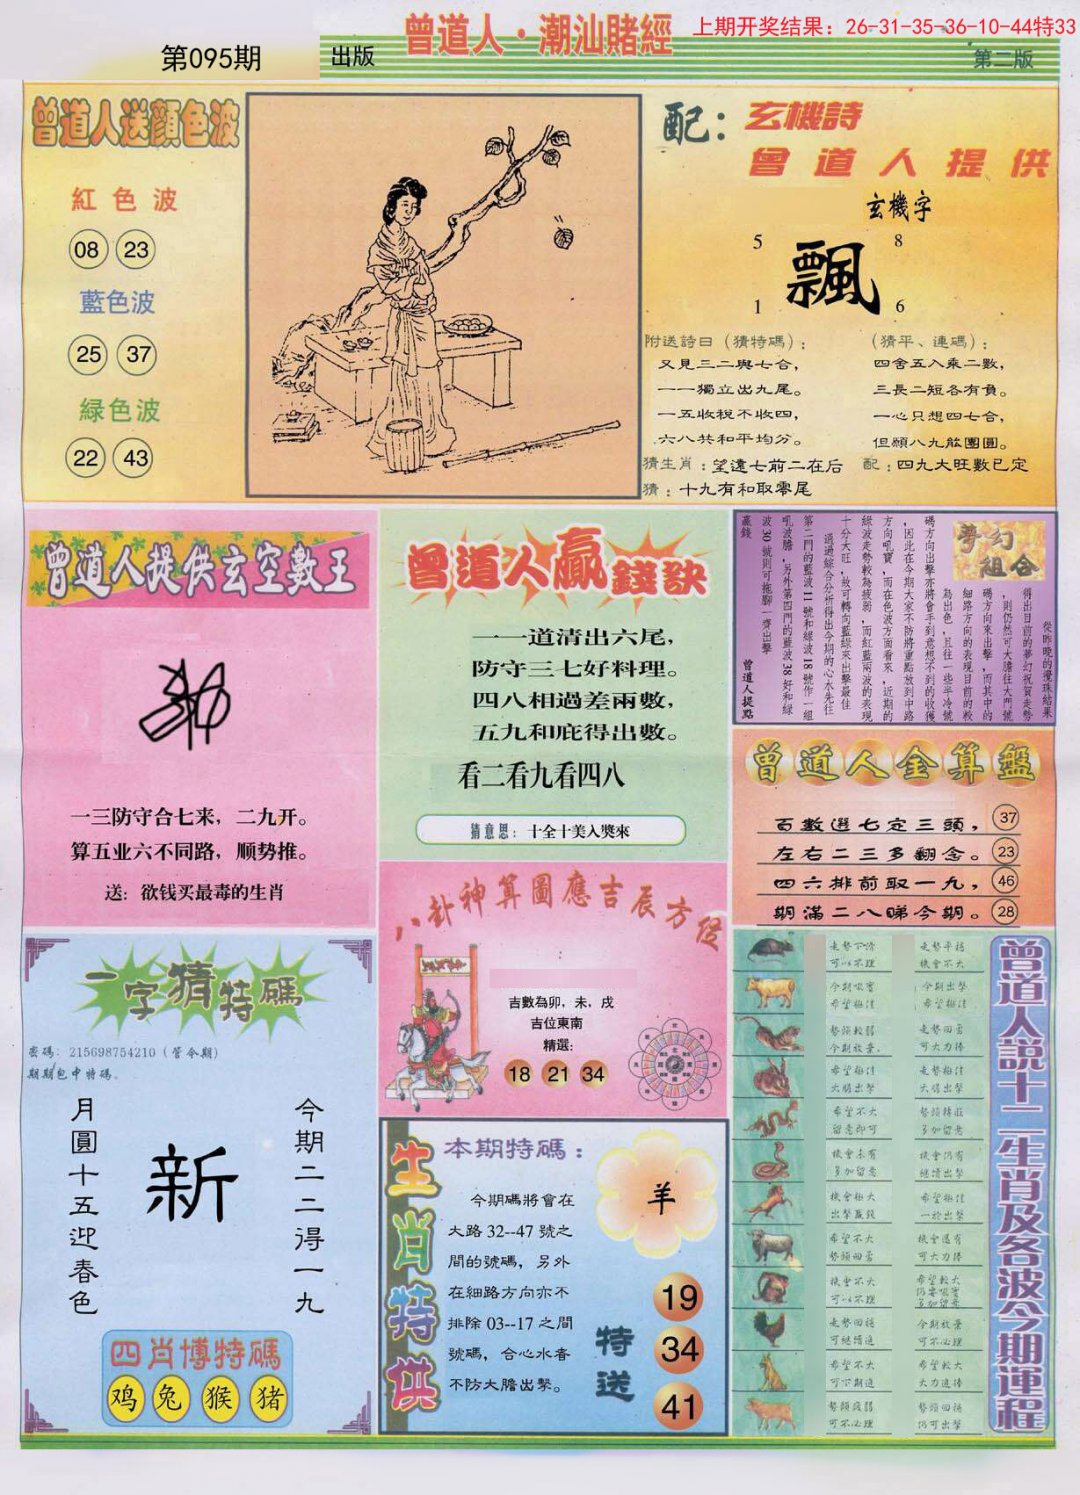 曾道人·潮汕賭經
上期开奖结果：26-31-35-36-10-44特33
第095期
出版
第二版
曾道人送顔色波
紅色波
08 23
藍色波
25 37
緑色波
22 43
配：玄機詩
曾道人提供
玄機字
5 8
飄
1 6
附送詩曰（猜特碼）：
又見三二與七合，
一一獨立出九尾。
一五收稅不收四，
六八共和平均分。
猜生肖：望遠七前二在后
猜：十九有和取零尾
（猜平、連碼）：
四舍五入乘二數，
三長二短各有負。
一心只想四七合，
但願八九能團圓。
配：四九大旺數已定
曾道人提供玄空數王
一三防守合七来，二九开。
算五业六不同路，顺势推。
送：欲钱买最毒的生肖
曾道人贏錢訣
一一道清出六尾，
防守三七好料理。
四八相過差兩數，
五九和庇得出數。
看二看九看四八
猜意思：十全十美入獎來
夢幻組合
從昨晚的攪珠結果
得出目前的夢幻祝賀走勢
，則仍然可大膽往大門號
碼方向來出擊，而其中的
細路方向的表現目前的較
為出色，且往一些半冷號
碼方向出擊亦將會手到意想不到的收獲
，因此在今期大家不防將重點放到中路
方向吼寶，而在色波方面看來，近期的
綠波走勢較為疲弱，而紅藍兩波的表現
十分大旺，故可轉向藍綠來出擊最佳
通過綜合分析得出今期的心水先往
第二門的藍波11號和綠波18號作一組
吼波膽，另外第四門的藍波38好和綠
波30號則可拖腳一齊出擊
贏錢
曾道人提點
曾道人金算盤
百數選七定三頭，37
左右二三多翻念。23
四六排前取一九，46
期滿二八睇今期。28
八卦神算圖應吉辰方位
吉數為卯，未，戌
吉位東南
精選：
18 21 34
一字猜特碼
密碼：215698754210（管令期）
期期包中特碼。
月圓十五迎春色
新
今期二二得一九
四肖博特碼
鸡 兔 猴 猪
生肖特供
本期特碼：
今期碼將會在
大路32--47號之
間的號碼，另外
在細路方向亦不
排除03--17之間
號碼，合心水者
不防大膽出擊。
羊
特送
19
34
41
曾道人説十二生肖及各波今期運程